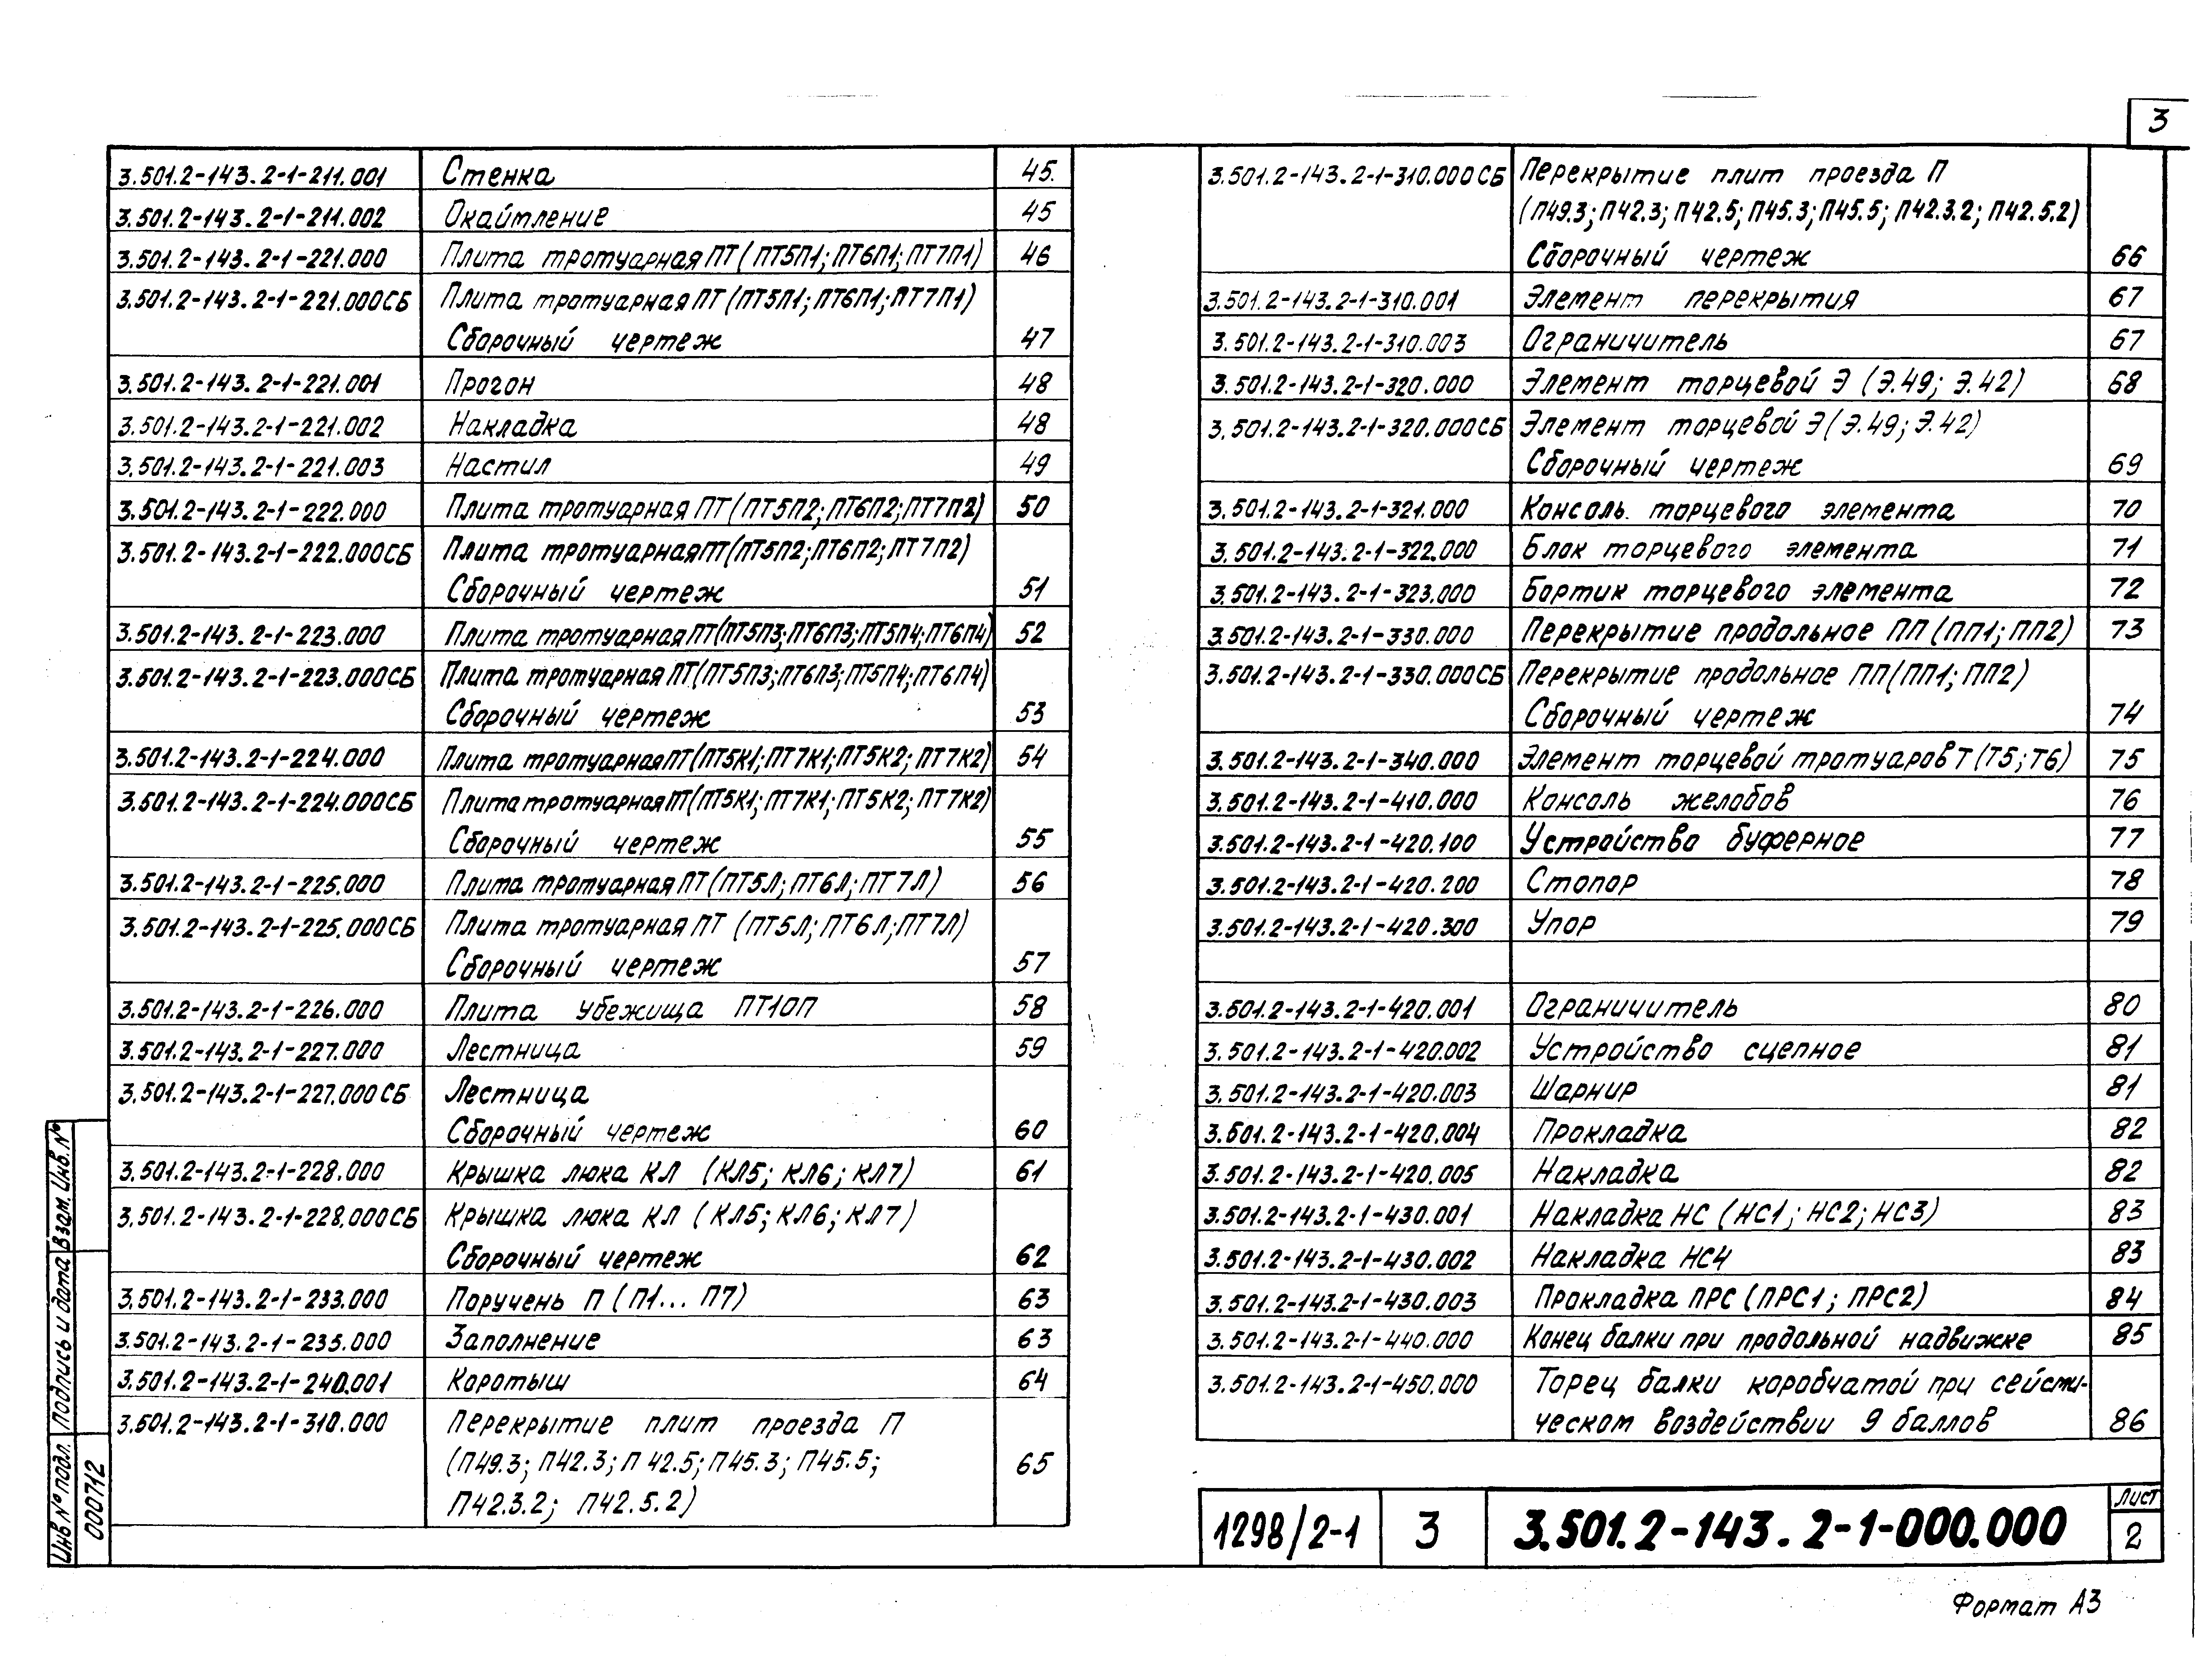 3
3.501.2-143.2-1-211.001 Стенка 45
3.501.2-143.2-1-211.002 Окаймление 45
3.501.2-143.2-1-221.000 Плита тротуарная ПТ (ПТ5П1; ПТ6П1; ПТ7П1) 46
3.501.2-143.2-1-221.000СБ Плита тротуарная ПТ (ПТ5П1; ПТ6П1; ПТ7П1)
Сборочный чертеж 47
3.501.2-143.2-1-221.001 Прогон 48
3.501.2-143.2-1-221.002 Накладка 48
3.501.2-143.2-1-221.003 Настил 49
3.501.2-143.2-1-222.000 Плита тротуарная ПТ (ПТ5П2; ПТ6П2; ПТ7П2) 50
3.501.2-143.2-1-222.000СБ Плита тротуарная ПТ (ПТ5П2; ПТ6П2; ПТ7П2)
Сборочный чертеж 51
3.501.2-143.2-1-223.000 Плита тротуарная ПТ (ПТ5П3; ПТ6П3; ПТ5П4; ПТ6П4) 52
3.501.2-143.2-1-223.000СБ Плита тротуарная ПТ (ПТ5П3; ПТ6П3; ПТ5П4; ПТ6П4)
Сборочный чертеж 53
3.501.2-143.2-1-224.000 Плита тротуарная ПТ (ПТ5К1; ПТ7К1; ПТ5К2; ПТ7К2) 54
3.501.2-143.2-1-224.000СБ Плита тротуарная ПТ (ПТ5К1; ПТ7К1; ПТ5К2; ПТ7К2)
Сборочный чертеж 55
3.501.2-143.2-1-225.000 Плита тротуарная ПТ (ПТ5Л; ПТ6Л; ПТ7Л) 56
3.501.2-143.2-1-225.000СБ Плита тротуарная ПТ (ПТ5Л; ПТ6Л; ПТ7Л)
Сборочный чертеж 57
3.501.2-143.2-1-226.000 Плита убежища ПТ10П 58
3.501.2-143.2-1-227.000 Лестница 59
3.501.2-143.2-1-227.000СБ Лестница
Сборочный чертеж 60
3.501.2-143.2-1-228.000 Крышка люка КЛ (КЛ5; КЛ6; КЛ7) 61
3.501.2-143.2-1-228.000СБ Крышка люка КЛ (КЛ5; КЛ6; КЛ7)
Сборочный чертеж 62
3.501.2-143.2-1-233.000 Поручень П (П1... П7) 63
3.501.2-143.2-1-235.000 Заполнение 63
3.501.2-143.2-1-240.001 Коротыш 64
3.501.2-143.2-1-310.000 Перекрытие плит проезда П
(П49.3; П42.3; П42.5; П45.3; П45.5; 65
П42.3.2; П42.5.2)
3.501.2-143.2-1-310.000СБ Перекрытие плит проезда П
(П49.3; П42.3; П42.5; П45.3; П45.5; П42.3.2; П42.5.2)
Сборочный чертеж 66
3.501.2-143.2-1-310.001 Элемент перекрытия 67
3.501.2-143.2-1-310.003 Ограничитель 67
3.501.2-143.2-1-320.000 Элемент торцевой Э (Э.49; Э.42) 68
3.501.2-143.2-1-320.000СБ Элемент торцевой Э (Э.49; Э.42)
Сборочный чертеж 69
3.501.2-143.2-1-321.000 Консоль торцевого элемента 70
3.501.2-143.2-1-322.000 Блок торцевого элемента 71
3.501.2-143.2-1-323.000 Бортик торцевого элемента 72
3.501.2-143.2-1-330.000 Перекрытие продольное ПП (ПП1; ПП2) 73
3.501.2-143.2-1-330.000СБ Перекрытие продольное ПП (ПП1; ПП2)
Сборочный чертеж 74
3.501.2-143.2-1-340.000 Элемент торцевой тротуаров Т (Т5; Т6) 75
3.501.2-143.2-1-410.000 Консоль желобов 76
3.501.2-143.2-1-420.100 Устройство буферное 77
3.501.2-143.2-1-420.200 Стопор 78
3.501.2-143.2-1-420.300 Упор 79
3.501.2-143.2-1-420.001 Ограничитель 80
3.501.2-143.2-1-420.002 Устройство сцепное 81
3.501.2-143.2-1-420.003 Шарнир 81
3.501.2-143.2-1-420.004 Прокладка 82
3.501.2-143.2-1-420.005 Накладка 82
3.501.2-143.2-1-430.001 Накладка НС (НС1; НС2; НС3) 83
3.501.2-143.2-1-430.002 Накладка НС4 83
3.501.2-143.2-1-430.003 Прокладка ПРС (ПРС1; ПРС2) 84
3.501.2-143.2-1-440.000 Конец балки при продольной надвижке 85
3.501.2-143.2-1-450.000 Торец балки коробчатой при сейсми-
ческом воздействии 9 баллов 86
Инв № подл. Подпись и дата Взам. Инв. №
000712
1298/2-1 3 3.501.2-143.2-1-000.000 Лист
2
Формат А3